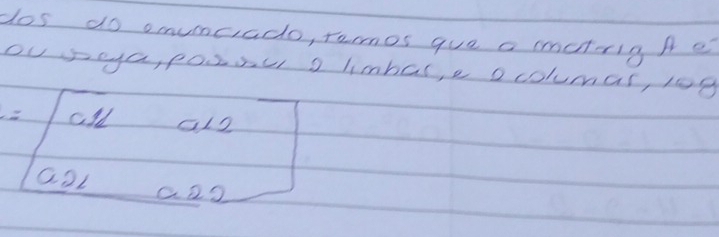 dos do enunciado, temos que a matriz A é
ou seja, possui 2 linhas, e 2 colunas, log
= a11 a12
a21 a22